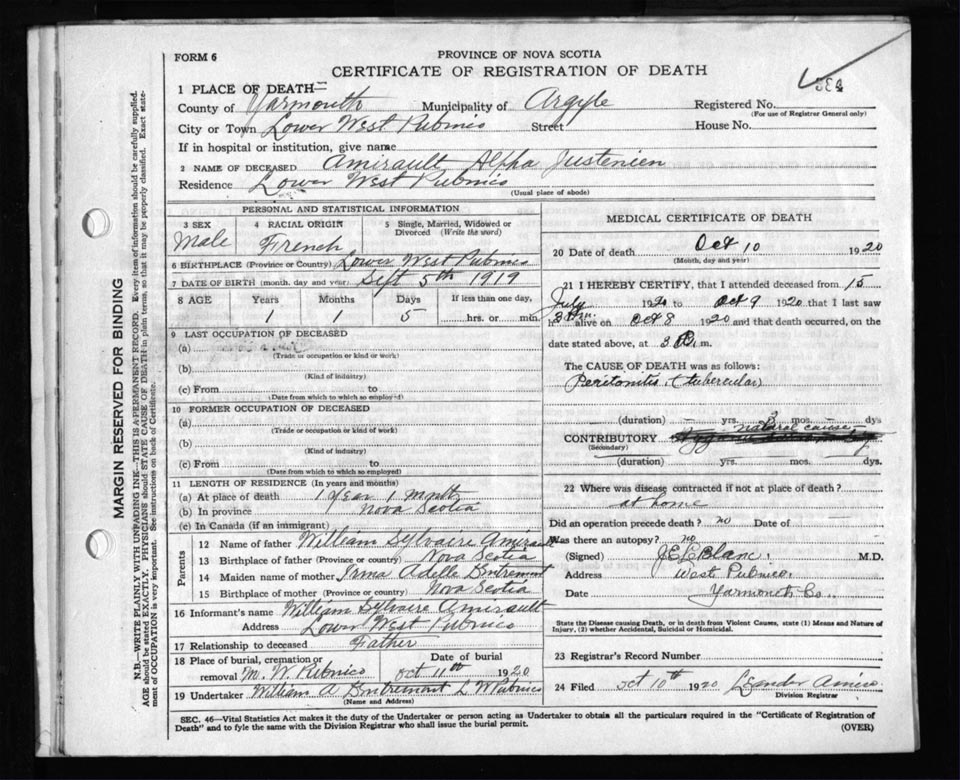 FORM 6
PROVINCE OF NOVA SCOTIA
CERTIFICATE OF REGISTRATION OF DEATH
1 PLACE OF DEATH—
County of Yarmouth Municipality of Argyle Registered No.
(For use of Registrar General only)
City or Town Lower West Pubnico Street House No.
If in hospital or institution, give name
2 NAME OF DECEASED Amirault Alpha Justenien
Residence Lower West Pubnico
(Usual place of abode)
PERSONAL AND STATISTICAL INFORMATION
3 SEX 4 RACIAL ORIGIN 5 Single, Married, Widowed or
Divorced (Write the word)
Male French
6 BIRTHPLACE (Province or Country) Lower West Pubnico
7 DATE OF BIRTH (month, day and year) Sept 5th 1919
8 AGE Years Months Days If less than one day,
1 1 5 hrs. or min.
9 LAST OCCUPATION OF DECEASED
(a)
(Trade or occupation or kind or work)
(b)
(Kind of industry)
(c) From to
(Date from which to which so employed)
10 FORMER OCCUPATION OF DECEASED
(a)
(Trade or occupation or kind of work)
(b)
(Kind of industry)
(c) From to
(Date from which to which so employed)
11 LENGTH OF RESIDENCE (In years and months)
(a) At place of death 1 year 1 month
(b) In province Nova Scotia
(c) In Canada (if an immigrant)
Parents
12 Name of father William Sylvaire Amirault
13 Birthplace of father (Province or country) Nova Scotia
14 Maiden name of mother Irma Adelle Entremont
15 Birthplace of mother (Province or country) Nova Scotia
16 Informant's name William Sylvaire Amirault
Address Lower West Pubnico
17 Relationship to deceased Father
18 Place of burial, cremation or Date of burial
removal M. W. Pubnico Oct 11th 1920
19 Undertaker William A Entremont L W Pubnico
(Name and Address)
MEDICAL CERTIFICATE OF DEATH
20 Date of death Oct 10 1920
(Month, day and year)
21 I HEREBY CERTIFY, that I attended deceased from 15
July 1920 to Oct 9 1920 that I last saw
h alive on Oct 8 1920 and that death occurred, on the
date stated above, at 3 m.
The CAUSE OF DEATH was as follows:
Peritonitis (tubercular)
(duration) yrs. 3 mos. dys
natural causes
CONTRIBUTORY
(Secondary)
(duration) yrs. mos. dys.
22 Where was disease contracted if not at place of death?
at home
Did an operation precede death? no Date of
Was there an autopsy? no
(Signed) J E LeBlanc. M.D.
Address West Pubnico.
Date Yarmouth Co.
State the Disease causing Death, or in death from Violent Causes, state (1) Means and Nature of
Injury, (2) whether Accidental, Suicidal or Homicidal.
23 Registrar's Record Number
24 Filed Oct 10th 1920 Leander
Division Registrar
SEC. 46—Vital Statistics Act makes it the duty of the Undertaker or person acting as Undertaker to obtain all the particulars required in the "Certificate of Registration of
Death" and to fyle the same with the Division Registrar who shall issue the burial permit. (OVER)
MARGIN RESERVED FOR BINDING
N.B.—WRITE PLAINLY WITH UNFADING INK—THIS IS A PERMANENT RECORD. Every item of information should be carefully supplied.
AGE should be stated EXACTLY. PHYSICIANS should STATE CAUSE OF DEATH in plain terms, so that it may be properly classified. Exact state-
ment of OCCUPATION is very important. See instructions on back of Certificate.